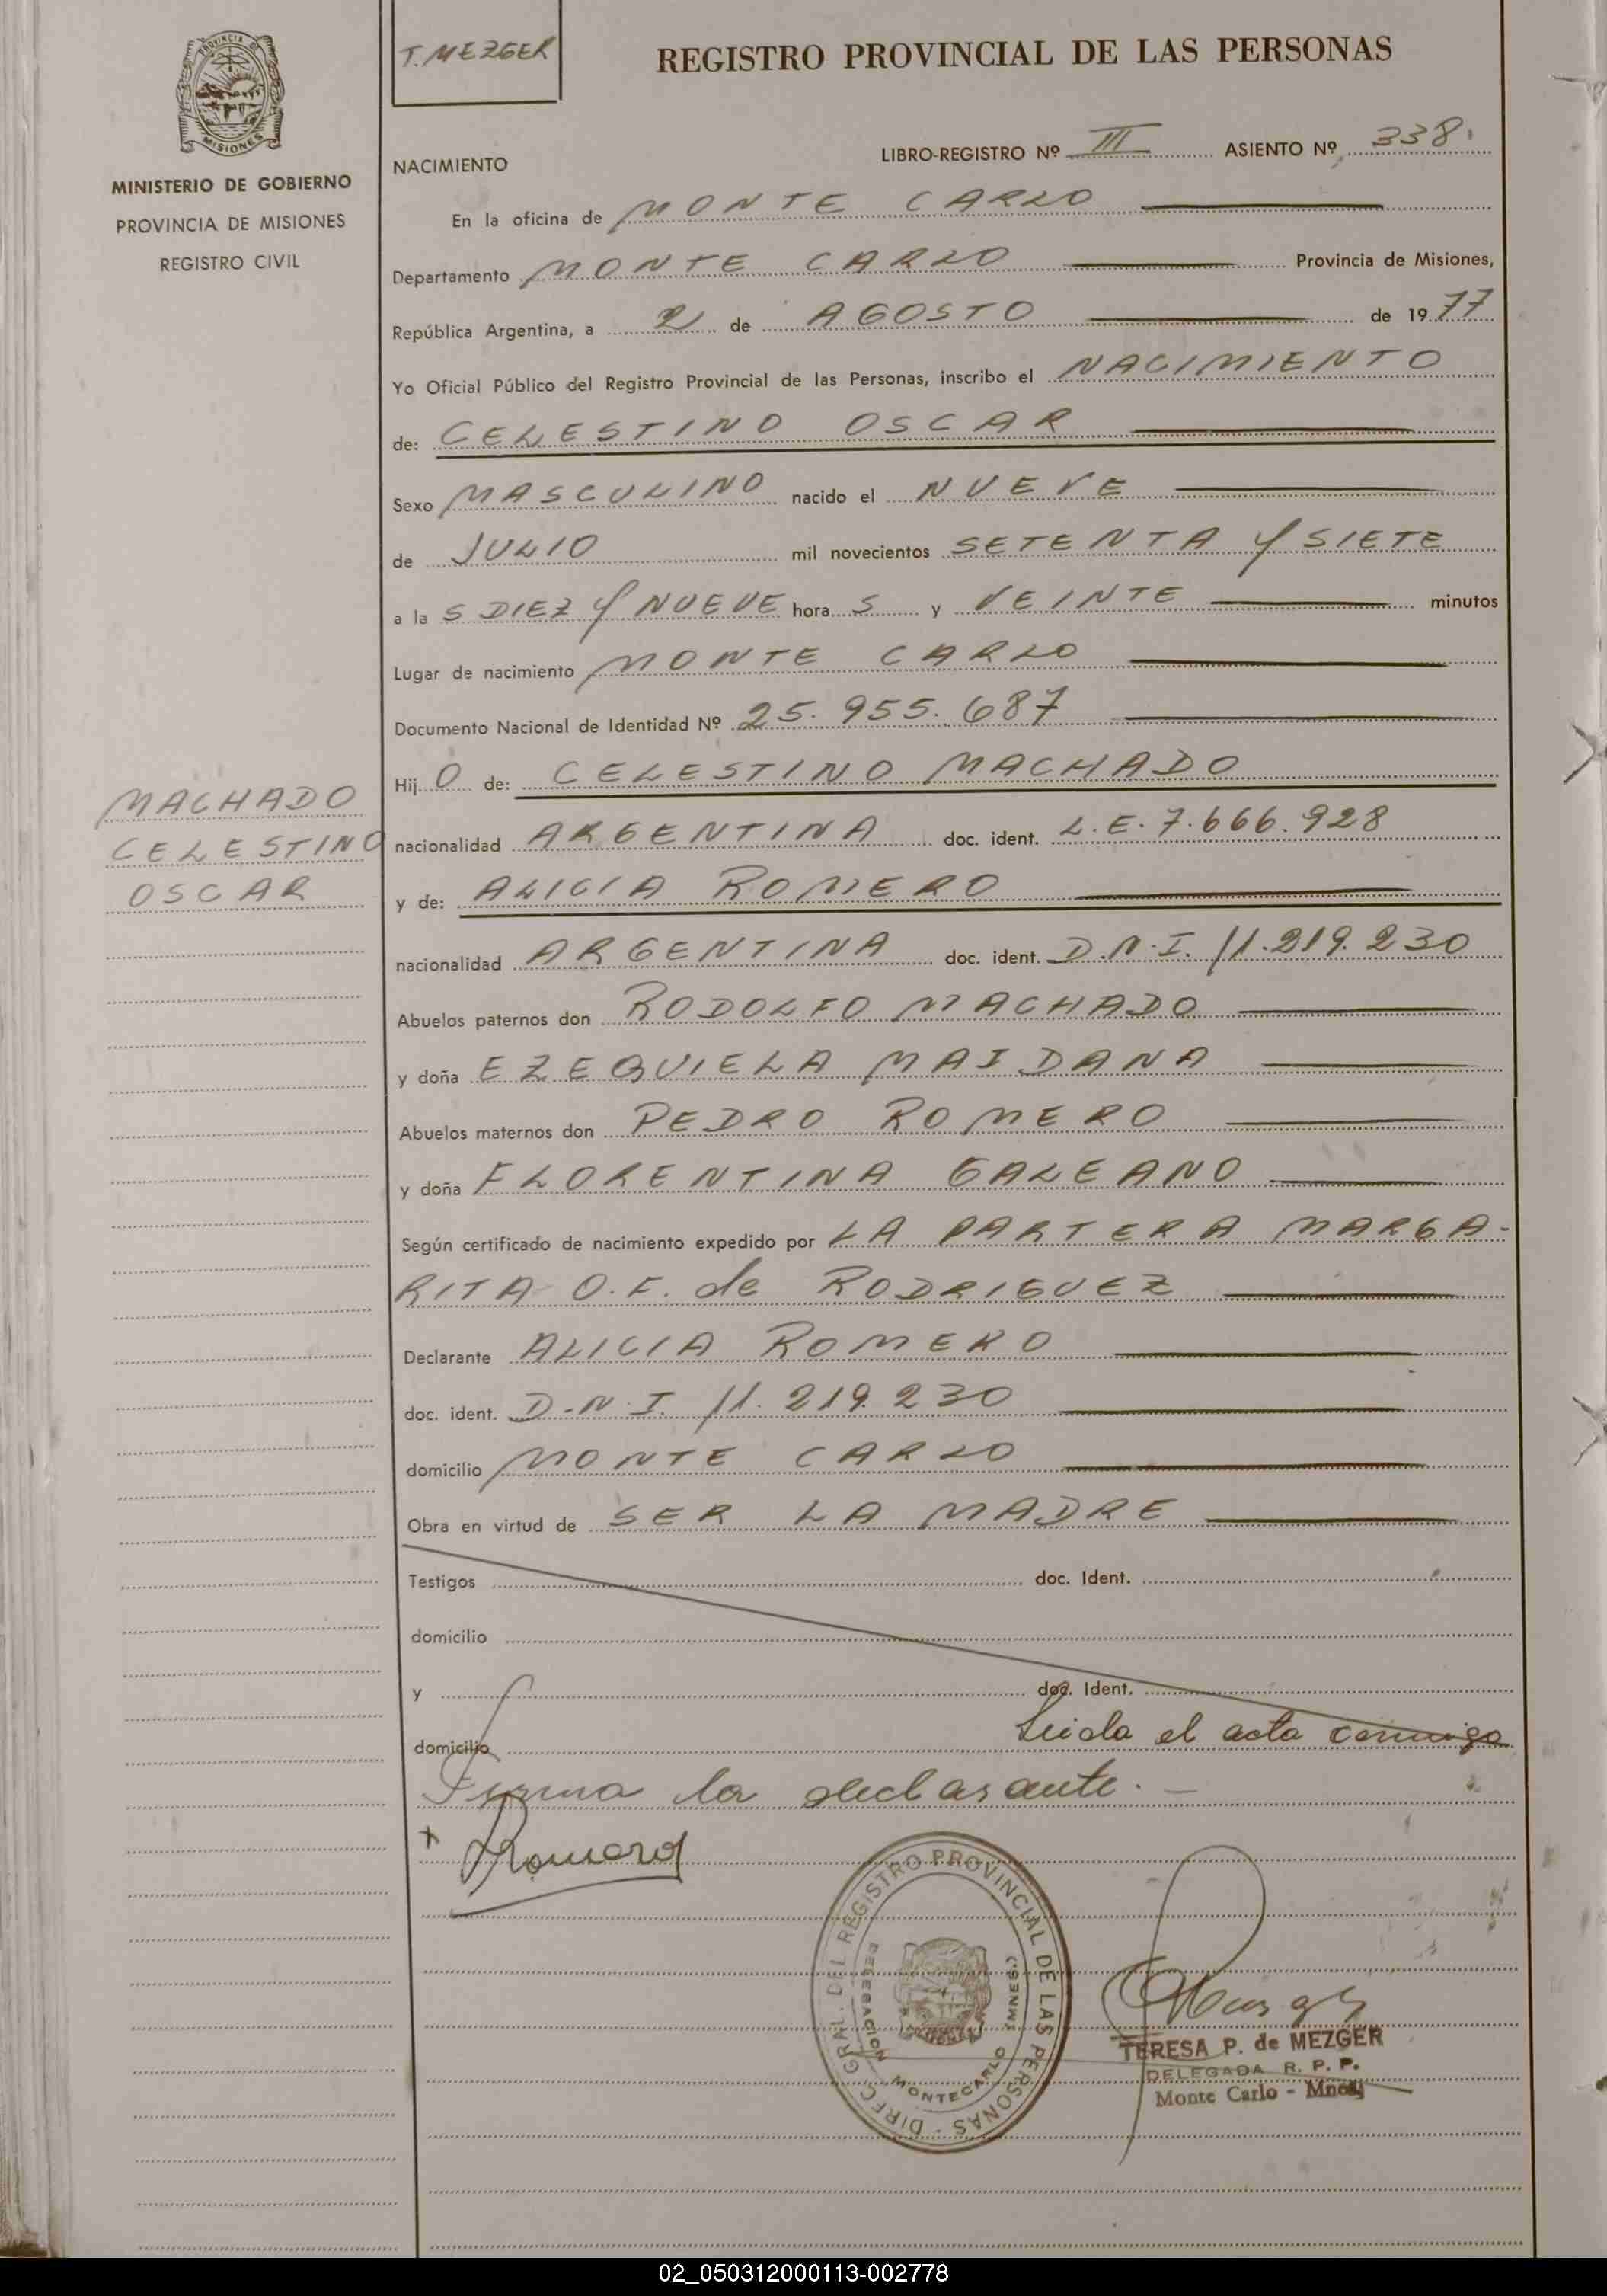 T. MEZGER
REGISTRO PROVINCIAL DE LAS PERSONAS
PROVINCIA DE
MISIONES
MINISTERIO DE GOBIERNO
PROVINCIA DE MISIONES
REGISTRO CIVIL
NACIMIENTO LIBRO-REGISTRO Nº III ASIENTO Nº 338
En la oficina de MONTE CARLO
Departamento MONTE CARLO Provincia de Misiones,
República Argentina, a 2 de AGOSTO de 1977
Yo Oficial Público del Registro Provincial de las Personas, inscribo el NACIMIENTO
de: CELESTINO OSCAR
Sexo MASCULINO nacido el NUEVE
de JULIO mil novecientos SETENTA Y SIETE
a la S DIEZ Y NUEVE hora S y VEINTE minutos
Lugar de nacimiento MONTE CARLO
Documento Nacional de Identidad Nº 25.955.687
Hij O de: CELESTINO MACHADO
MACHADO
CELESTINO
OSCAR
nacionalidad ARGENTINA doc. ident. L.E. 7.666.928
y de: ALICIA ROMERO
nacionalidad ARGENTINA doc. ident. D.N.I. 11.219.230
Abuelos paternos don RODOLFO MACHADO
y doña EZEQUIELA MAIDANA
Abuelos maternos don PEDRO ROMERO
y doña FLORENTINA GALEANO
Según certificado de nacimiento expedido por LA PARTERA MARGA-
RITA O.F. de RODRIGUEZ
Declarante ALICIA ROMERO
doc. ident. D.N.I. 11.219.230
domicilio MONTE CARLO
Obra en virtud de SER LA MADRE
Testigos doc. Ident.
domicilio
y doc. Ident.
domicilio Leida el acta conmigo
Firma la declarante.
+ Romero
DIREC. GRAL. DEL REGISTRO PROVINCIAL DE LAS PERSONAS -
DELEGACION MONTECARLO (MNES.)
TERESA P. de MEZGER
DELEGADA R. P. P.
Monte Carlo - Mnes
02_050312000113-002778